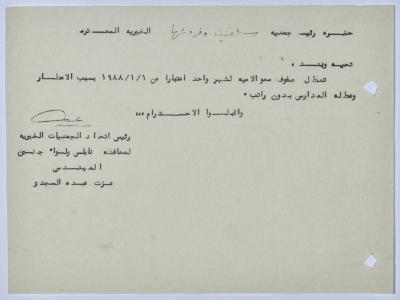 حضرة رئيس جمعية وفروشها الخيرية المحترم
تحية وبعد ،
تعطل صفوف محو الامية لشهر واحد اعتبارا من ١٩٨٨/١/١ بسبب الامطار
وعطلة المدارس بدون راتب ٠
واقبلوا الاحترام ،،،
رئيس اتحاد الجمعيات الخيرية
لمحافظة نابلس ولواء جنين
المهندس
عزت عبده المجدي